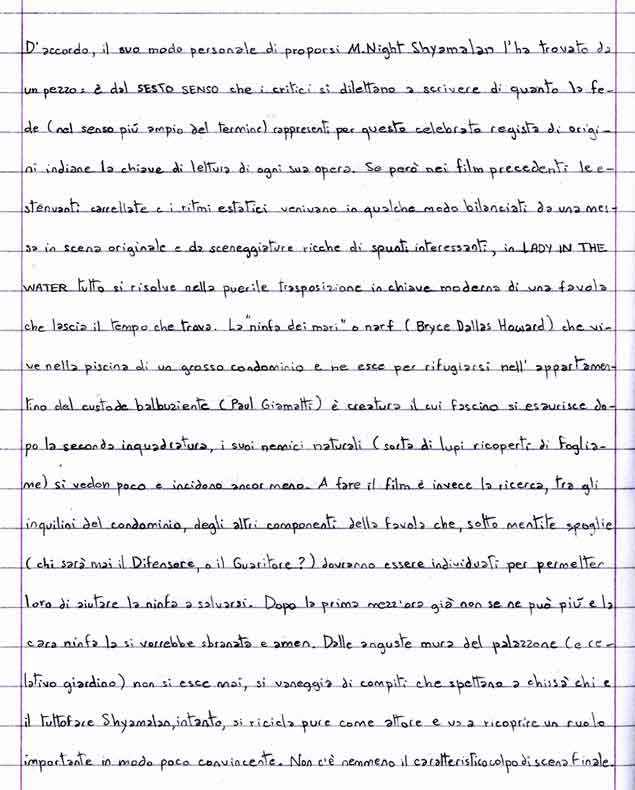 D'accordo, il suo modo personale di proporsi M.Night Shyamalan l'ha trovato da
un pezzo: è dal SESTO SENSO che i critici si dilettano a scrivere di quanto la fe-
de (nel senso più ampio del termine) rappresenti per questo celebrato regista di origi-
ni indiane la chiave di lettura di ogni sua opera. Se però nei film precedenti le e-
stenuanti carrellate e i ritmi estatici venivano in qualche modo bilanciati da una mes-
sa in scena originale e da sceneggiature ricche di spunti interessanti, in LADY IN THE
WATER tutto si risolve nella puerile trasposizione in chiave moderna di una favola
che lascia il tempo che trova. La "ninfa dei mari" o narf (Bryce Dallas Howard) che vi-
ve nella piscina di un grosso condominio e ne esce per rifugiarsi nell'appartamen-
tino del custode balbuziente (Paul Giamatti) è creatura il cui fascino si esaurisce do-
po la seconda inquadratura, i suoi nemici naturali (sorta di lupi ricoperti di foglia-
me) si vedon poco e incidono ancor meno. A fare il film è invece la ricerca, tra gli
inquilini del condominio, degli altri componenti della favola che, sotto mentite spoglie
(chi sarà mai il Difensore, o il Guaritore?) dovranno essere individuati per permetter
loro di aiutare la ninfa a salvarsi. Dopo la prima mezz'ora già non se ne può più e la
cara ninfa la si vorrebbe sbranata e amen. Dalle anguste mura del palazzone (e re-
lativo giardino) non si esce mai, si vaneggia di compiti che spettano a chissà chi e
il tuttofare Shyamalan, intanto, si ricicla pure come attore e va a ricoprire un ruolo
importante in modo poco convincente. Non c'è nemmeno il caratteristico colpo di scena finale.